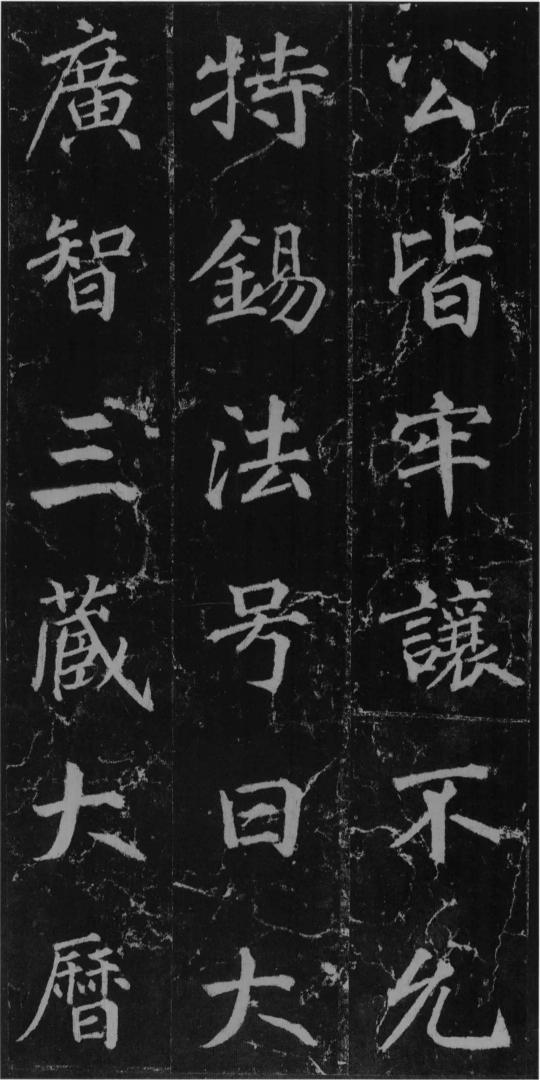 公皆牢讓不允
特錫法号曰大
廣智三蔵大曆